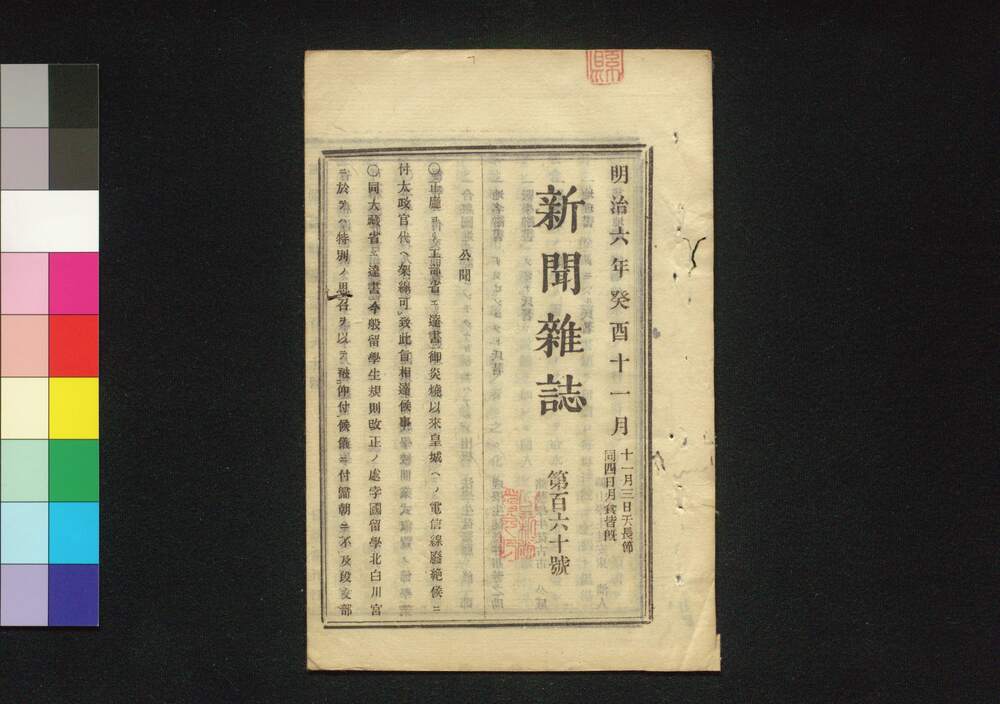 明治六年癸酉十一月
十一月三日天長節
同四日月食皆既
新聞雑誌
第百六十號
公聞
〇正廳ヨリ工部省ヱ達書御炎燒以來皇城ヘノ電信線廢絶候ニ
付太政官代ヘ架線可致此旨相達候事
〇同大藏省ヱ達書今般留學生規則改正ノ處孛國留學北白川宮
ニ於テハ特別ノ思召ヲ以テ被仰付候儀ニ付歸朝ニ不及段文部